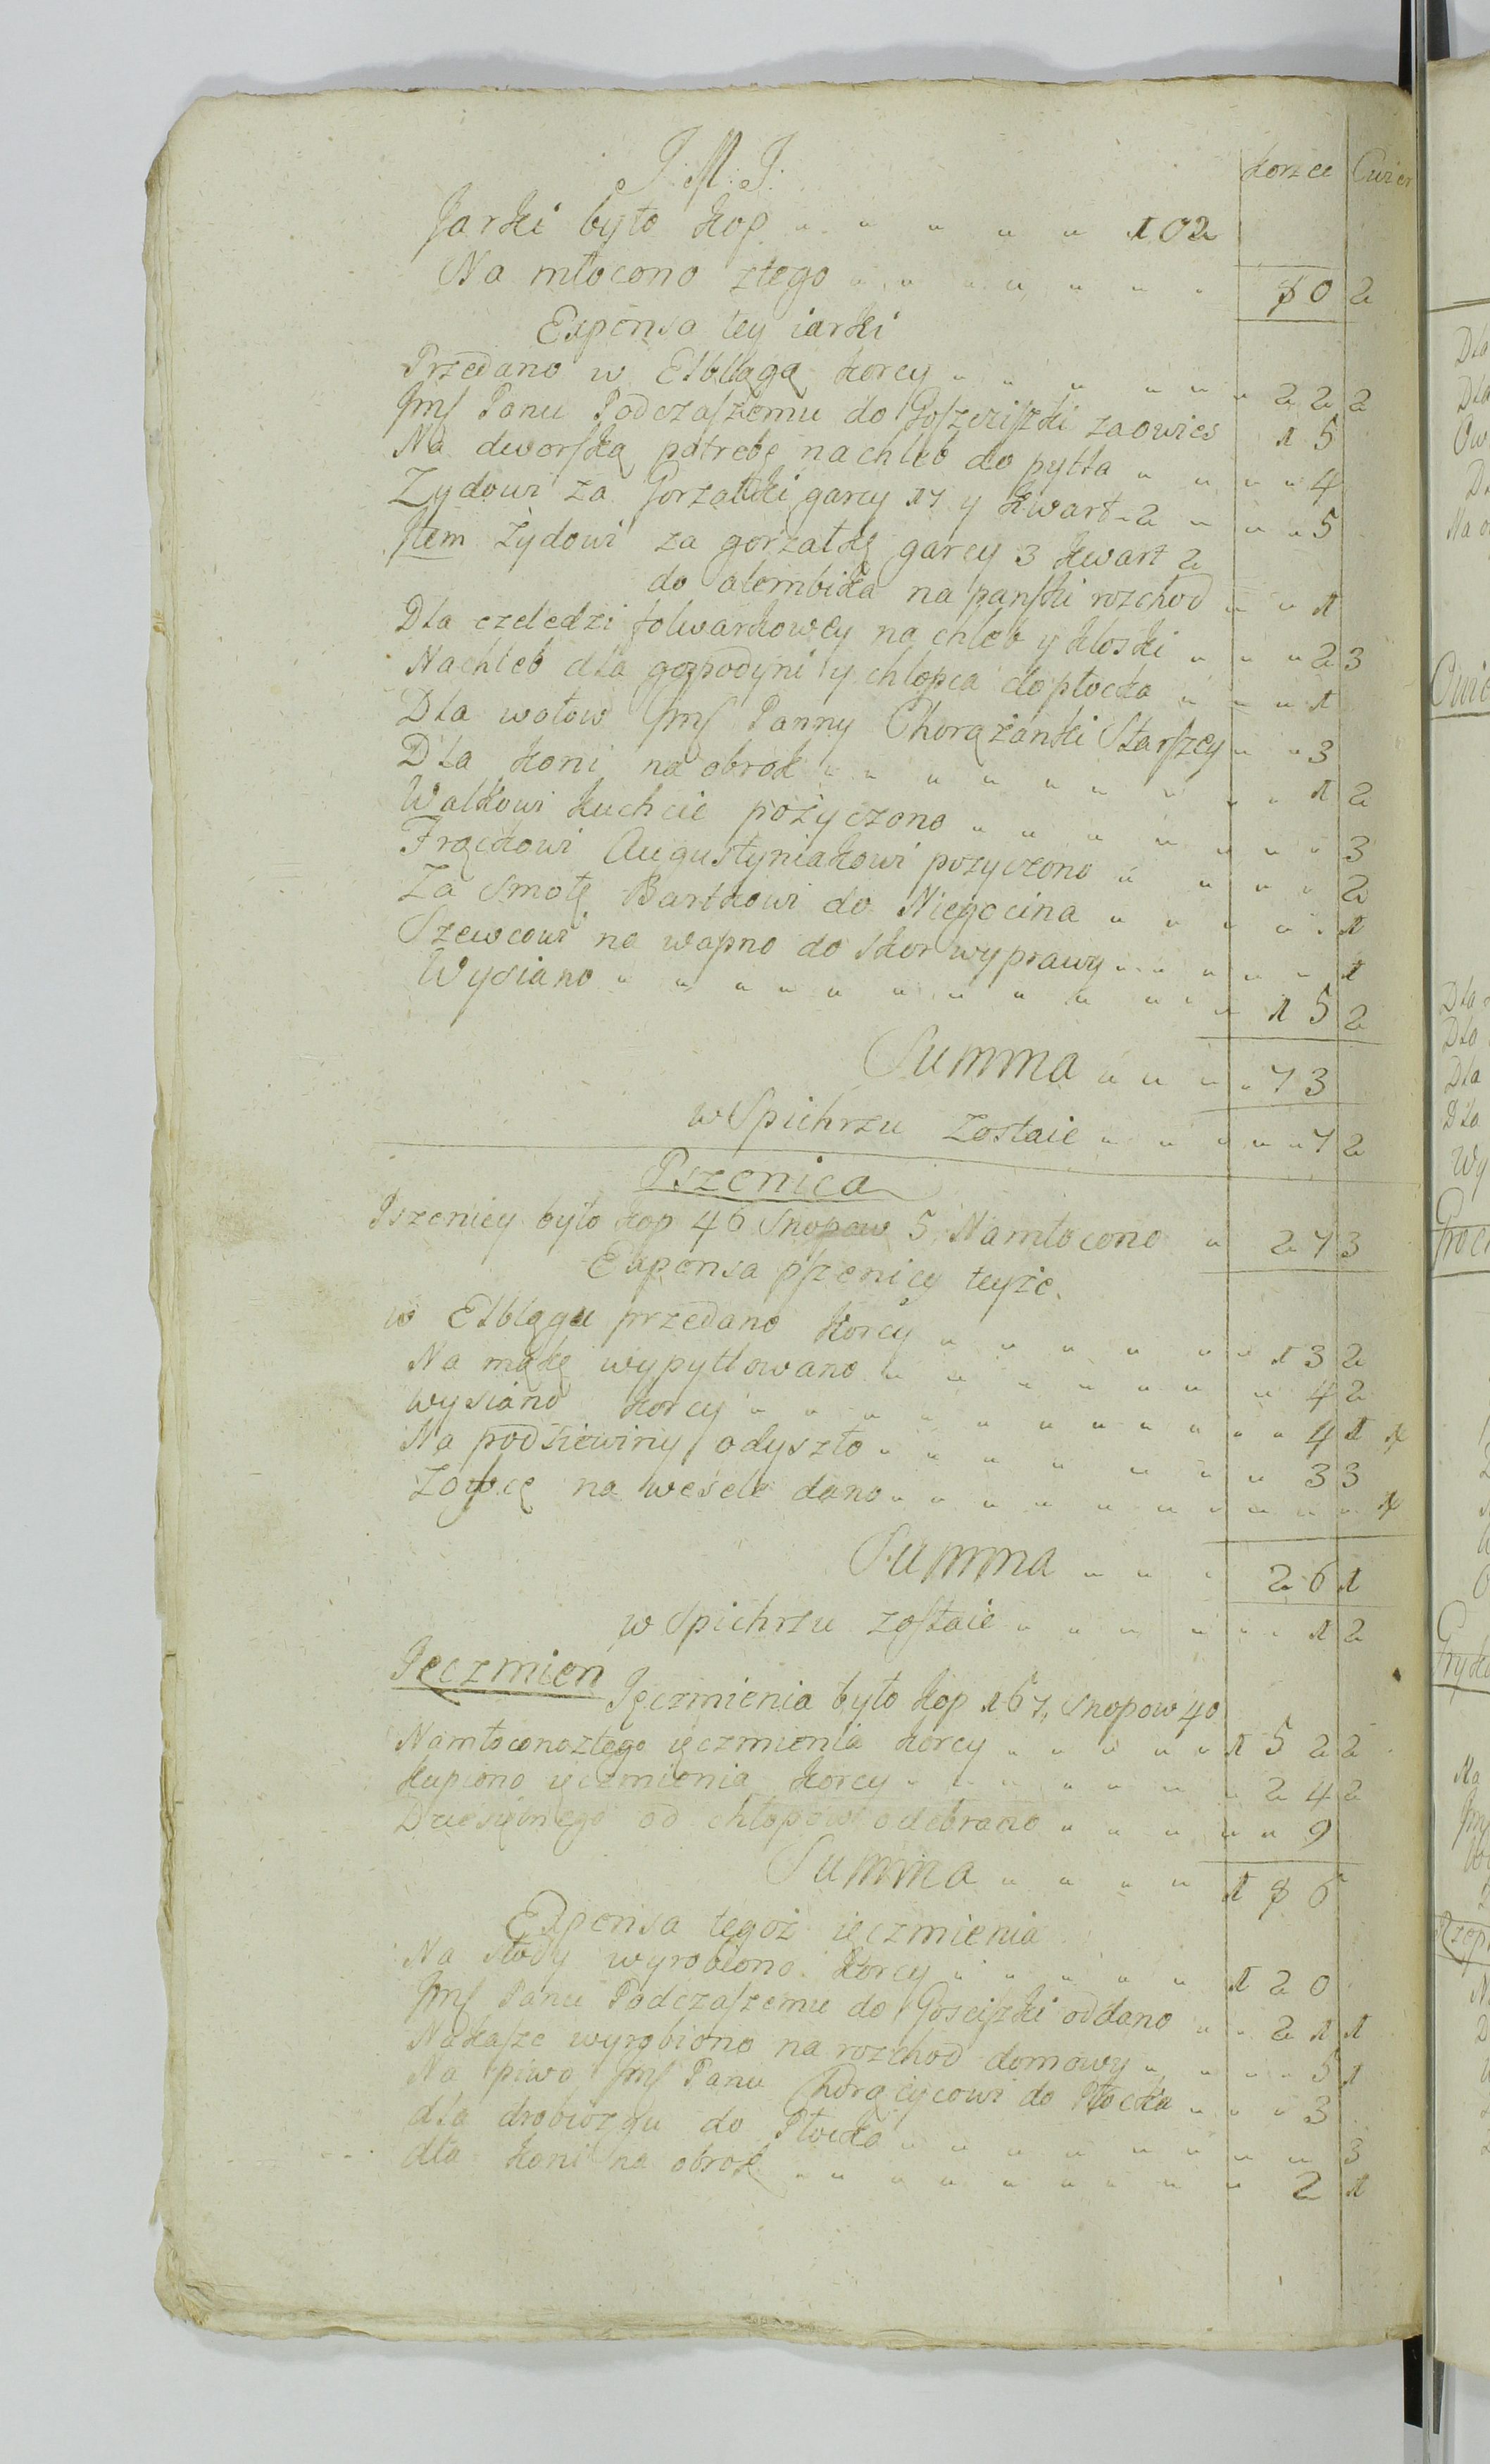 J. M. J. korzce Cwier
Jarki było kop 102
Na młocono ztego 80 2
Expensa tey iarki
Przedano w Elblągą korcy 22 2
Jmſ Panu Podczaſzemu do zaowies 15
Na dworſką potrebę na chleb do pytla 4
Zydowi za Gorzałki garcy 17 y kwart 2 5
Jtem Zydowi za gorzałkę garcy 3 kwart 2
do alembika na panſki rozchod 1
Dla czeledzi folwarkowey na chleb y kloski 2 3
Nachleb dla gozpodyni y chłopca do płocka 1
Dla wołow Jmſ Panny Chorążanki Starſzey 3
Dla koni na obrok 1 2
Walkowi kuchcie pożyczono 3
Frąckowi Augustyniakowi pozyczono 2
Za smołę Bartkowi do Niegocina 1
Szewcowi na wapno do skor wyprawy 1
Wysiano 15 2
Summa 73
w Spichrzu zostaie 7 2
Pszenica
Pszenicy było kop 46 Snopow 5 Namłocono 27 3
Expensa pſzenicy teyże.
w Elblągu przedano korcy 13 2
Na mąkę wypytlowano 4 2
Wysiano korcy 4 1 ⁠
Na podsiewiny odyszło 3 3
na wesele dano
Summa 26 1
w Spichrzu zoſtaie 1 2
Jęczmien Jęczmienia było kop 167, Snopow 40
Namłoconoztego ięczmienia korcy 152 2
kupiono ięczmienia korcy 24 2
Dziesiętnego od chłopow odebrano 9
Summa 186
Expensa tegoż ięczmienia
Na słody wyrobiono korcy 120
Jmſ Panu Podczaſzemu do Gosciſzki oddano 21 1
Nakaſze wyrobiono na rozchod domowy 5 1
Na piwo Jmſ Panu Chorążycowi do Płocka 3
dla drobiozgu do Płocka 3
dla koni na obrok 2 1